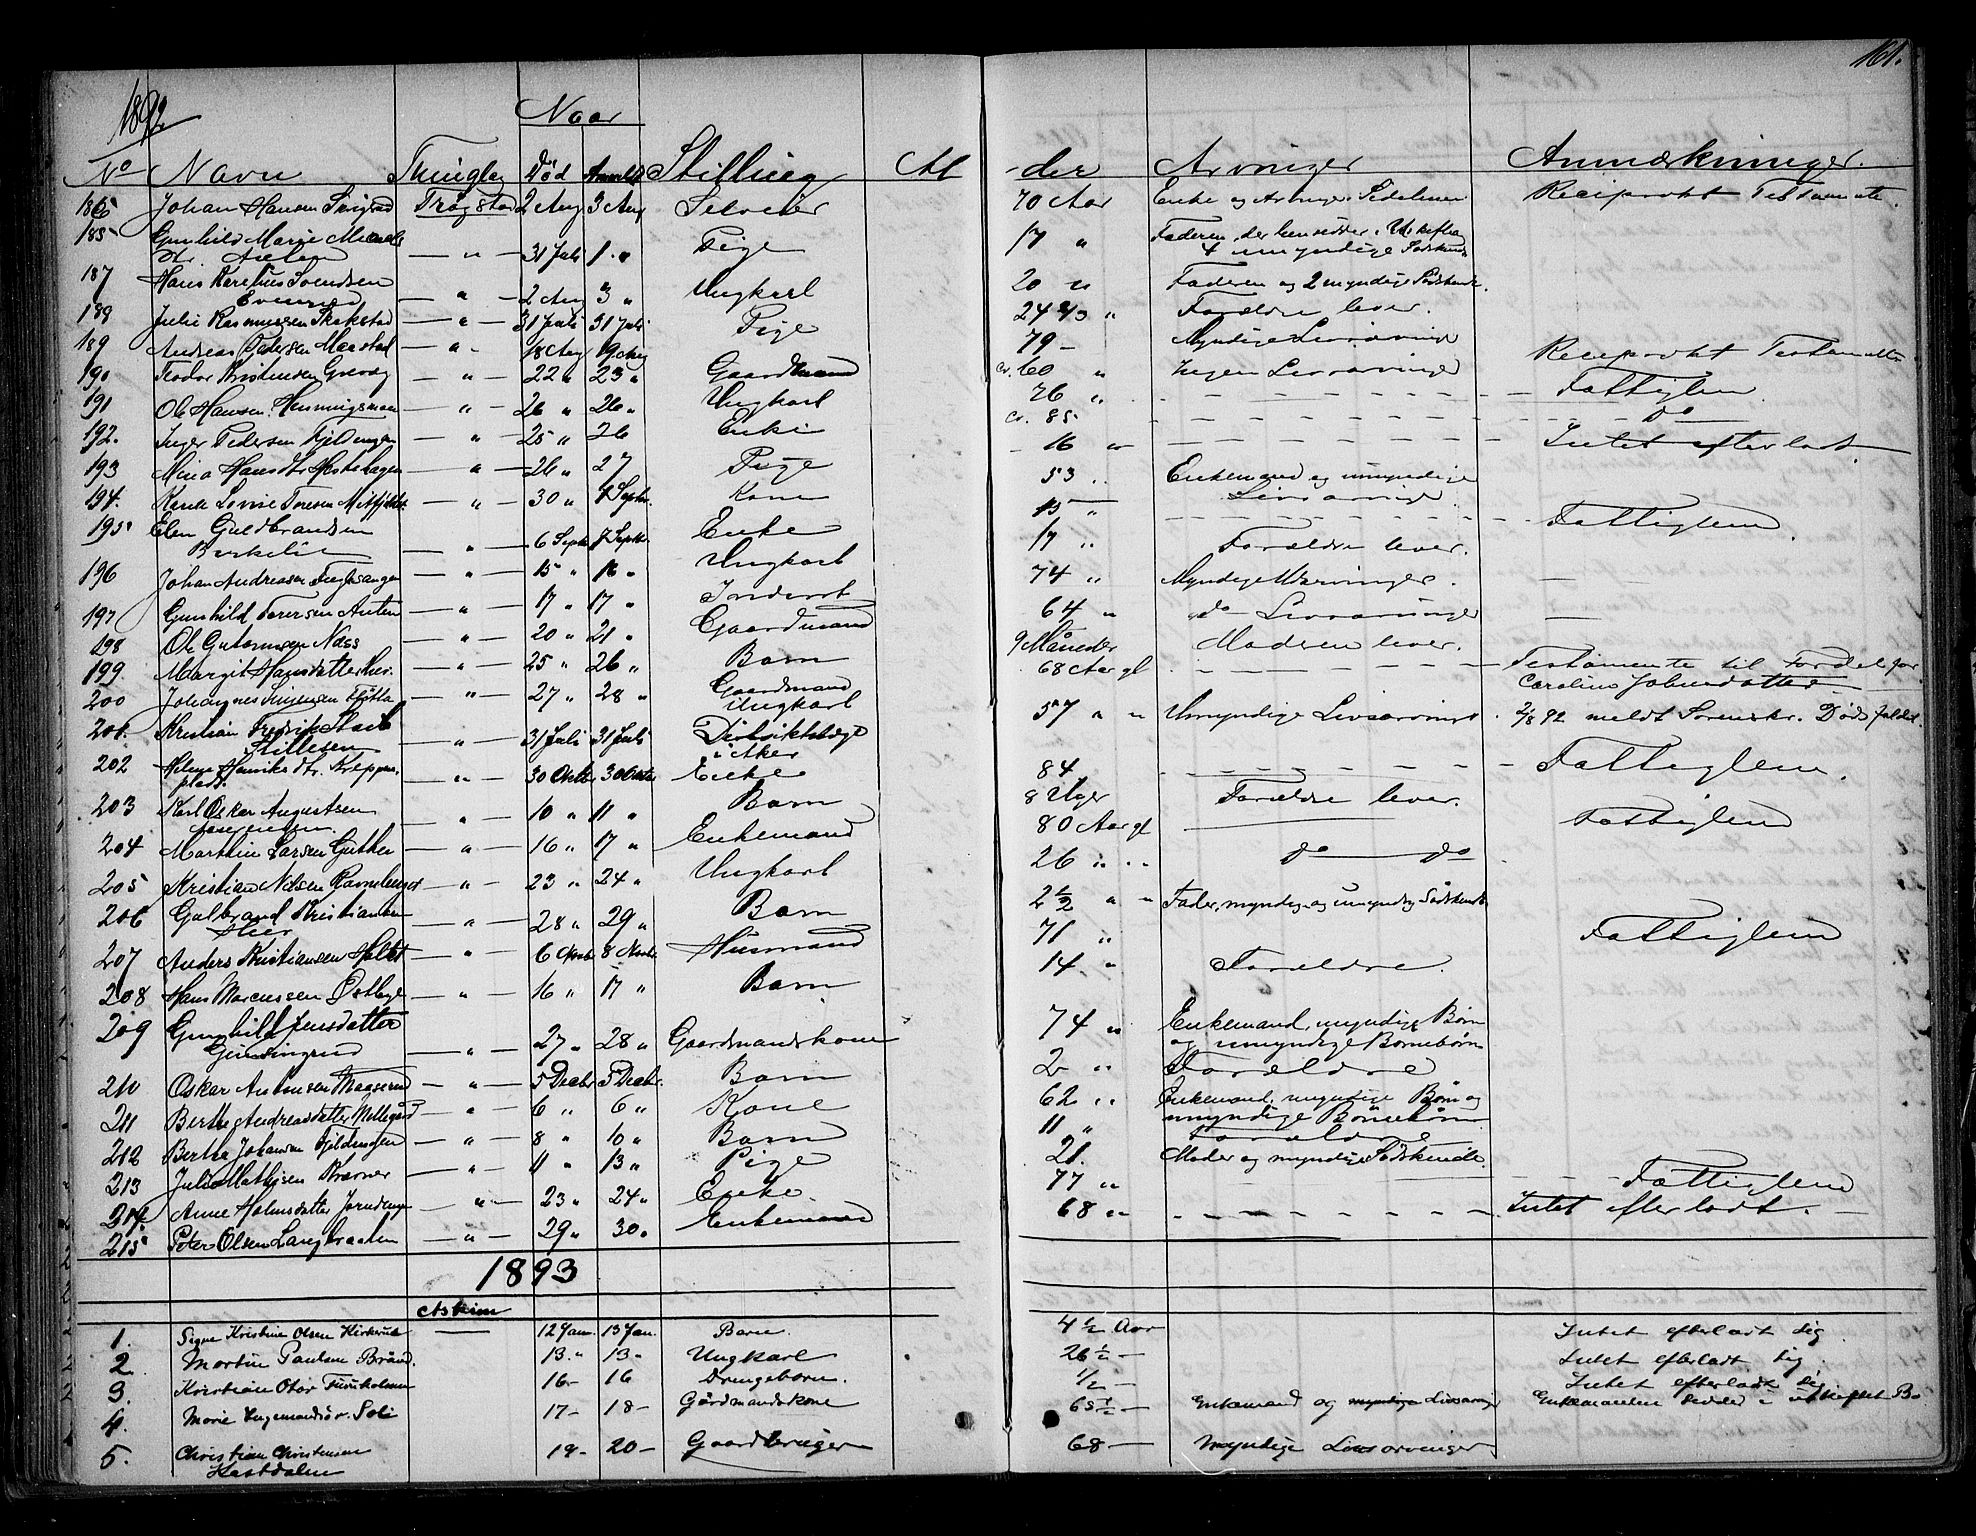 161.
1892
Naar
No Navn Thinglag Død Anmeldt Stilling Al der Arvinger Anmærkninger.
186 Johan Hansen Trøgstad 2 Aug 3 Aug Selveier 70 Aar Enke og Arvinger Reciprokt Testamente.
185 Gunhild Marie
— " — 31 Juli 1. " Pige 17 " Faderen, der hensidder i Uskiftebo
4 umyndige Sødskende
187 Hans Karelius Svendsen
— " — 2 Aug 3 " Ungkarl 20 " Faderen og 2 myndige Sødskende.
188 Julie Rasmussen Skakstad — " — 31 Juli 31 Juli Pige 24 2/3 " Forældre lever.
189 Andreas Pedersen Maastad — " — 18 Aug 19 Aug 79 — Myndige Livsarvinge
190 Teodor Kristensen Greveg — " — 22 " 23 " Gaardmand ca. 60 " Ingen Livsarvinger Reciprokt Testamente
191 Ole Hansen Henningsmoen — " — 26 " 26 " Ungkarl 76 " Fattiglem
192. Inger Pedersen — " — 25 " 26 Enke ca. 85 do
193 Mina Hansdtr Hestehagen — " — 26 " 27 Pige 16 " Intet efterladt.
194. Lovise Toresen — " — 30 " 1 Septbr. Kone 53 " Enkemand og umyndige
Livsarvinge
195 Elen Guldbrandsen
Birkelie — " — 6 Septbr 7 Septbr. Enke 75 " Fattiglem
196 Johan Andreasen Fuglesangen — " — 15 " 16 " Ungkarl 17 " Forældre lever.
197 Gunhild Toresen — " — 17 " 17 " Inderst 74 " Myndige Udarvinger. —
198 Ole Guttormsen Næss — " — 20 " 21 " Gaardmand 64 " do — Livsarvinger —
199 Margit Hansdatter Hær. — " — 25 " 26 " Barn 9 Måneder Moderen lever.
200 Johannes — " — 27 " 28 " Gaardmand
Ungkarl 68 Aar gl Testamente til Fordel for
Caroline Johnsdatter
201. Kristian Fredrik Stact
Stillesen — " — 31 Juli 31 Juli Distriktslæge
i Aker 57 " " Umyndige Livsarvinge. 2/8 92 meldt Sorenskr. Dødsfaldet
202 Helene Henriksdtr. Kreppen
plads. — " — 30 Oktbr 30 Oktbr Enke 84 Fattiglem.
203 Karl Oskar Augustsen
— " — 10 " 11 " Barn 8 Uger Forældre lever.
204 Marthin Larsen Guther — " — 16 " 17 " Enkemand 80 Aar gl Fattiglem
205 Kristian Nilsen — " — 23 " 24 " Ungkarl 26 " " do — do
206 Gulbrand Kristiansen
Hær — " — 28 " 29 " Barn 2 1/2 " " Fader, myndig og umyndig Sødskende
207 Anders Kristiansen — " — 6 Novbr 8 Novbr Husmand 71 " Fattiglem
208 Hans Marcussen Østbye — " — 16 " 17 " Barn 14 " Forældre.
209 Gunhild Jensdatter
— " — 27 " 28 " Gaardmandskone 74 " Enkemand, myndige Børn
og umyndige Børnebørn
210 Oskar Antonsen — " — 5 Decbr 5 Decbr. Barn 2 " Forældre
211 Berthe Andreasdatter Mellegård — " — 6 " 6 " Kone 62 " Enkemand, myndige Børn og
umyndige Børnebørn
212 Berthe Johansen — " — 8 " 10 " Barn 11 " Forældre
213 Julie Mathisen — " — 11 " 13 " Pige 21. Moder og myndige Sødskende.
214. Anne Holmsdatter — " — 23 " 24 " Enke. 77 " Fattiglem
215 Peter Olsen Langbraaten — " — 29 " 30 " Enkemand 68 " Intet efterladt. —
1893
Askim
1. Signe Kristine Olsen Kirkerud — 12 Jan. 13 Jan. Barn. 4 1/2 Aar Intet efterladt sig
2 Martin Paulsen Brånd. 13. " 13 - Ungkarl 26 1/2 — Intet efterladt sig.
3. Kristian Otar 16 - 16 Drengebarn. 1/2 — Intet efterladt sig
4. Marie Ingemundsdr. Soli 17 - 18 - Gårdmandskone 65 1/2 — Enkemand og myndige Livsarvinger Enkemanden sidder i uskiftet Bo
5. Christian Christensen
Hestdalen 19 - 20 - Gaardbruger 68 — Myndige Livsarvinger